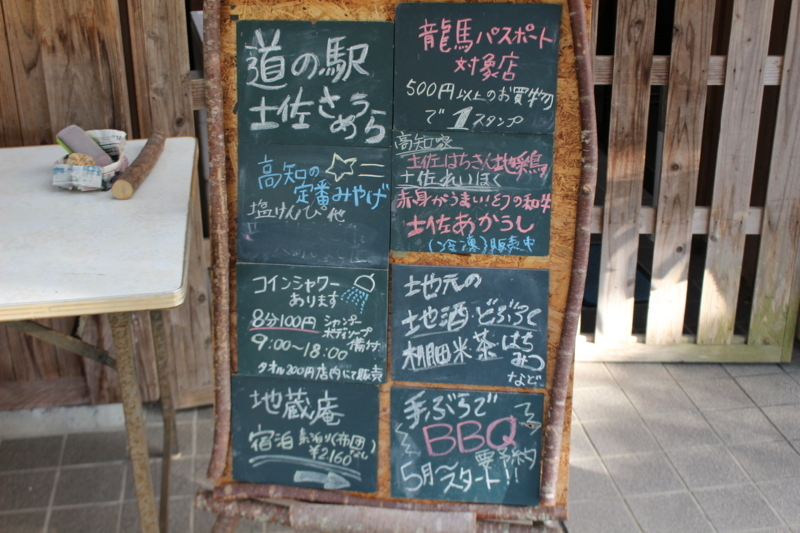 道の駅
土佐さめうら
高知の
定番みやげ
塩けんぴ他
コインシャワー
あります
8分100円
シャンプー
ボディソープ
備付
9:00〜18:00
タオル200円店内にて販売
地蔵庵
宿泊
素泊り(布団なし)
¥2160
龍馬パスポート
対象店
500円以上のお買物
で1スタンプ
高知家
土佐はちきん地鶏
土佐れいほく
赤身がうまい!とつの和牛
土佐あかうし
(冷凍)販売中
地元の
地酒 どぶろく
棚田米 茶 はちみつ
など…
手ぶらで
BBQ
要予約
5月〜スタート!!